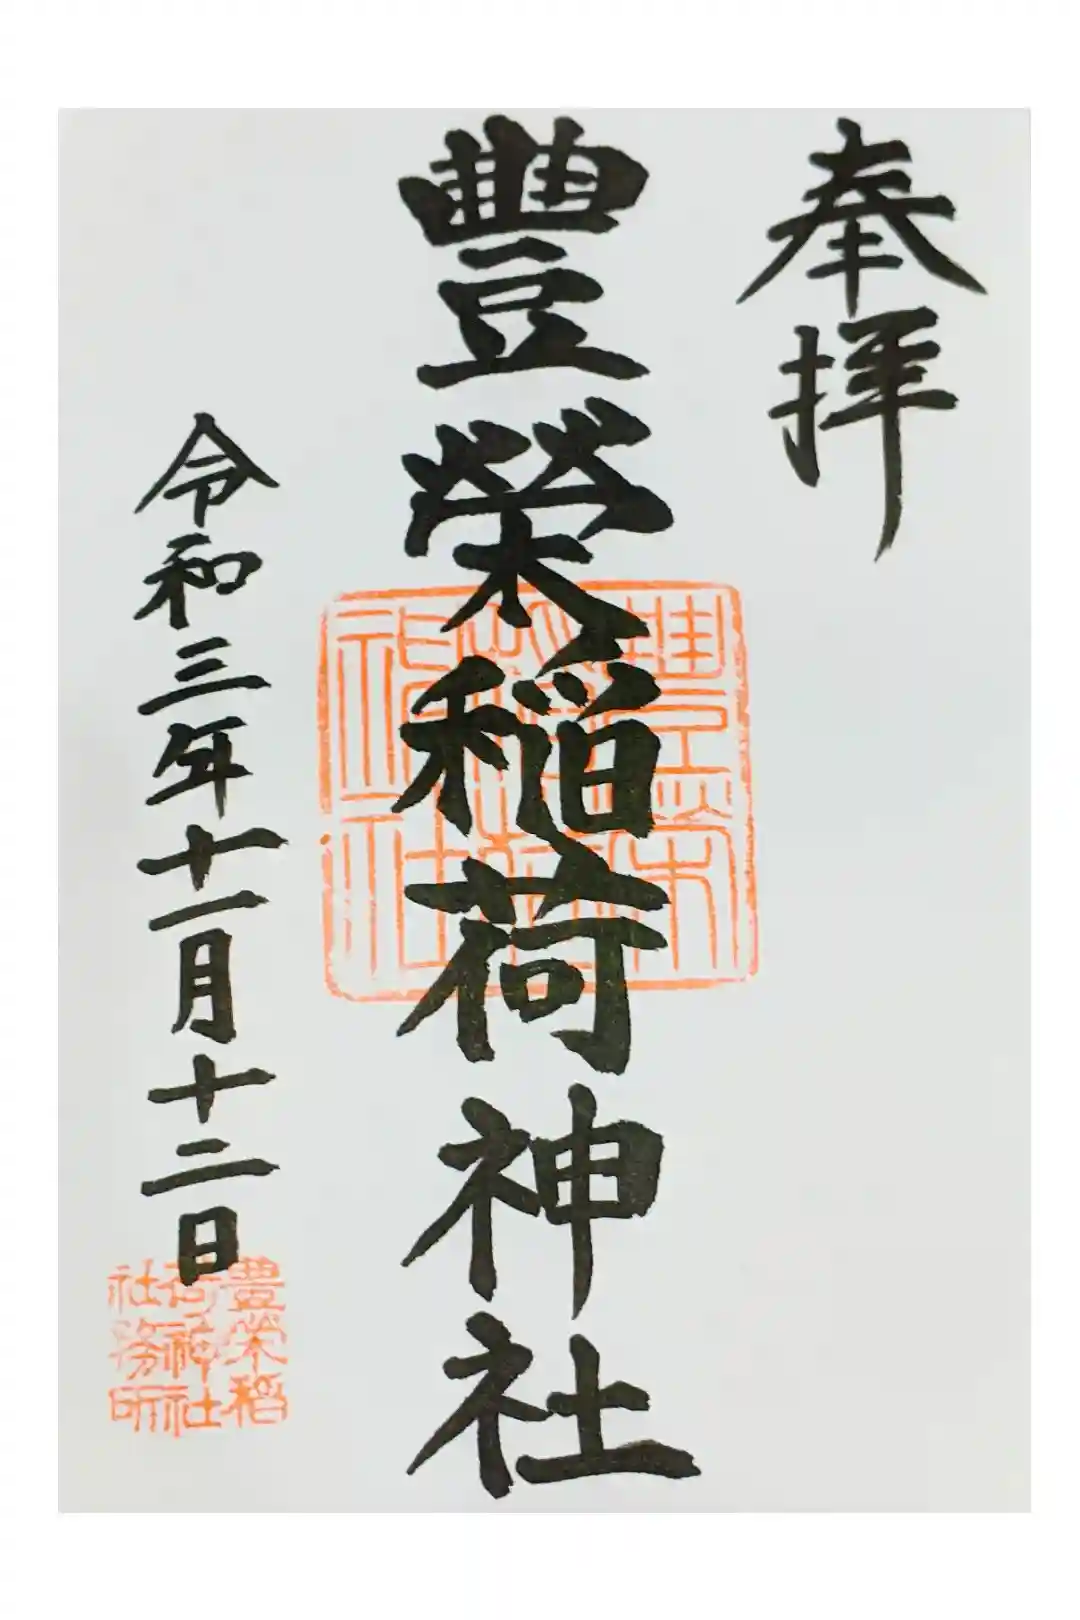 奉拝
豐榮稲荷神社
豊栄稲荷神社
令和三年十一月十二日
豊栄稲
荷神社
社務所